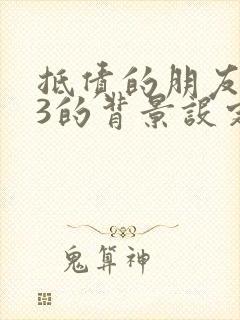 抵债的朋友
3的背景设定
鬼算神